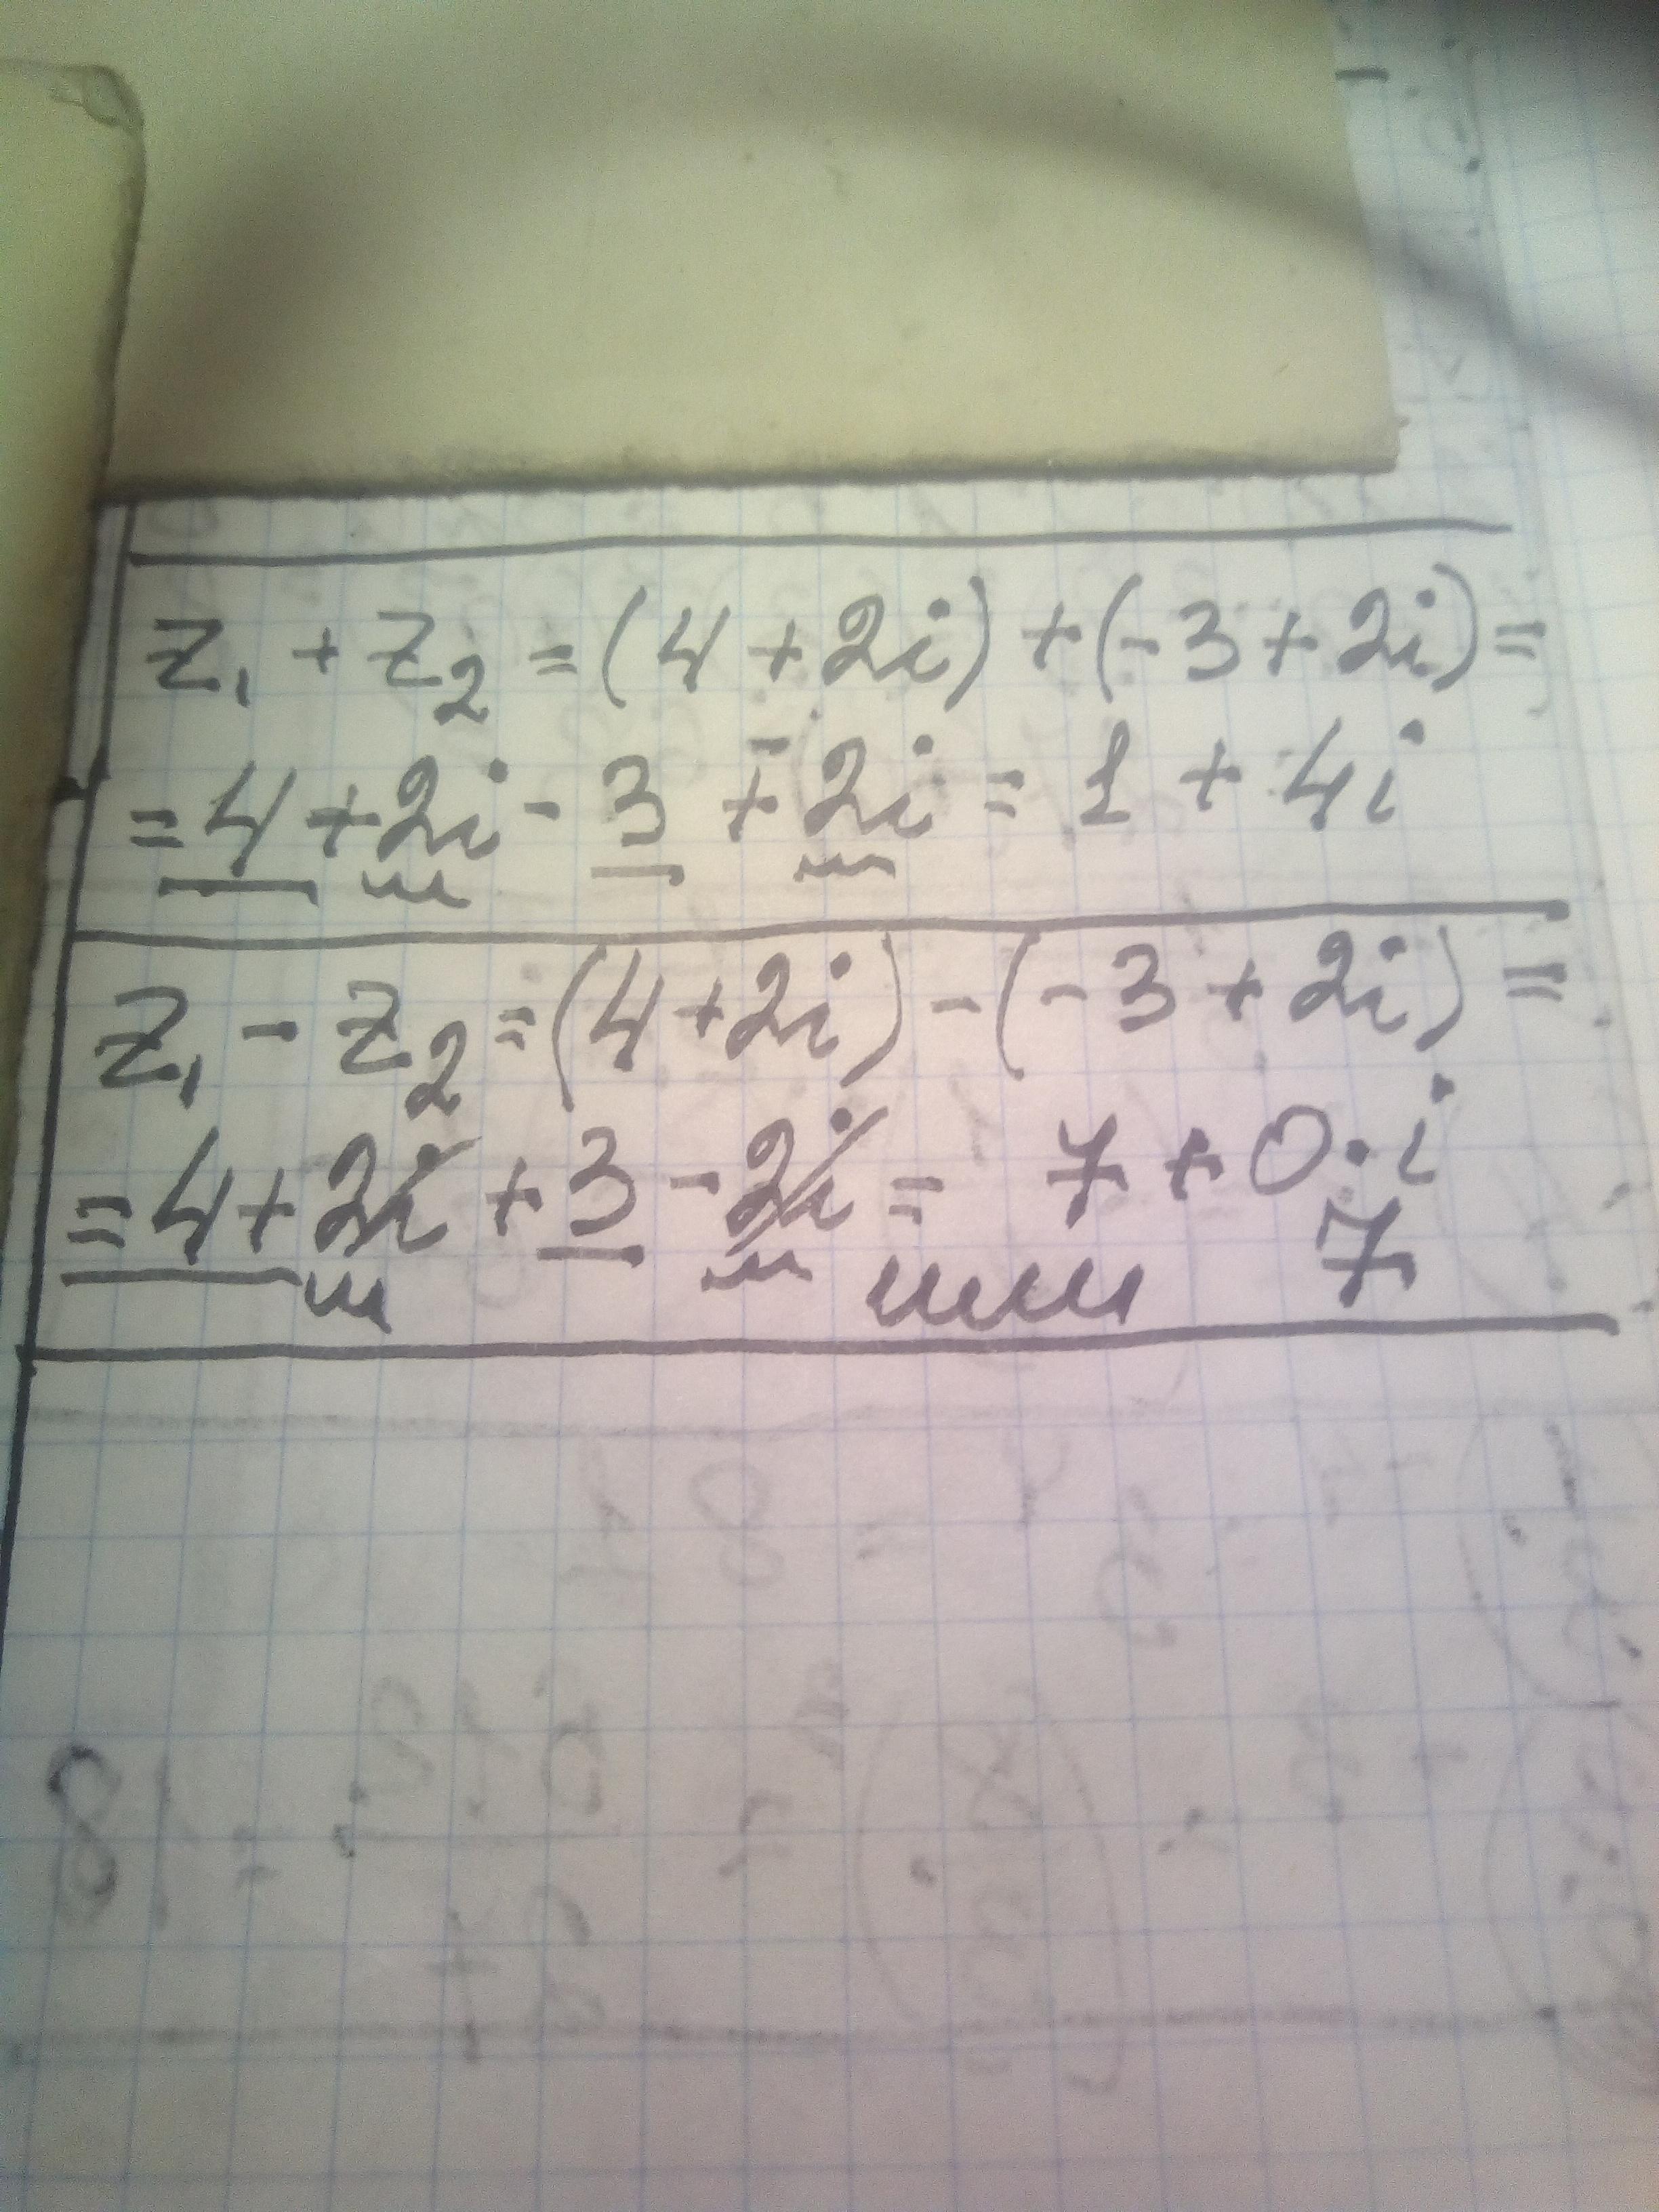 z₁ + z₂ = (4 + 2i) + (-3 + 2i) =
= 4 + 2i - 3 + 2i = 1 + 4i
z₁ - z₂ = (4 + 2i) - (-3 + 2i) =
= 4 + 2i + 3 - 2i = 7 + 0·i
7